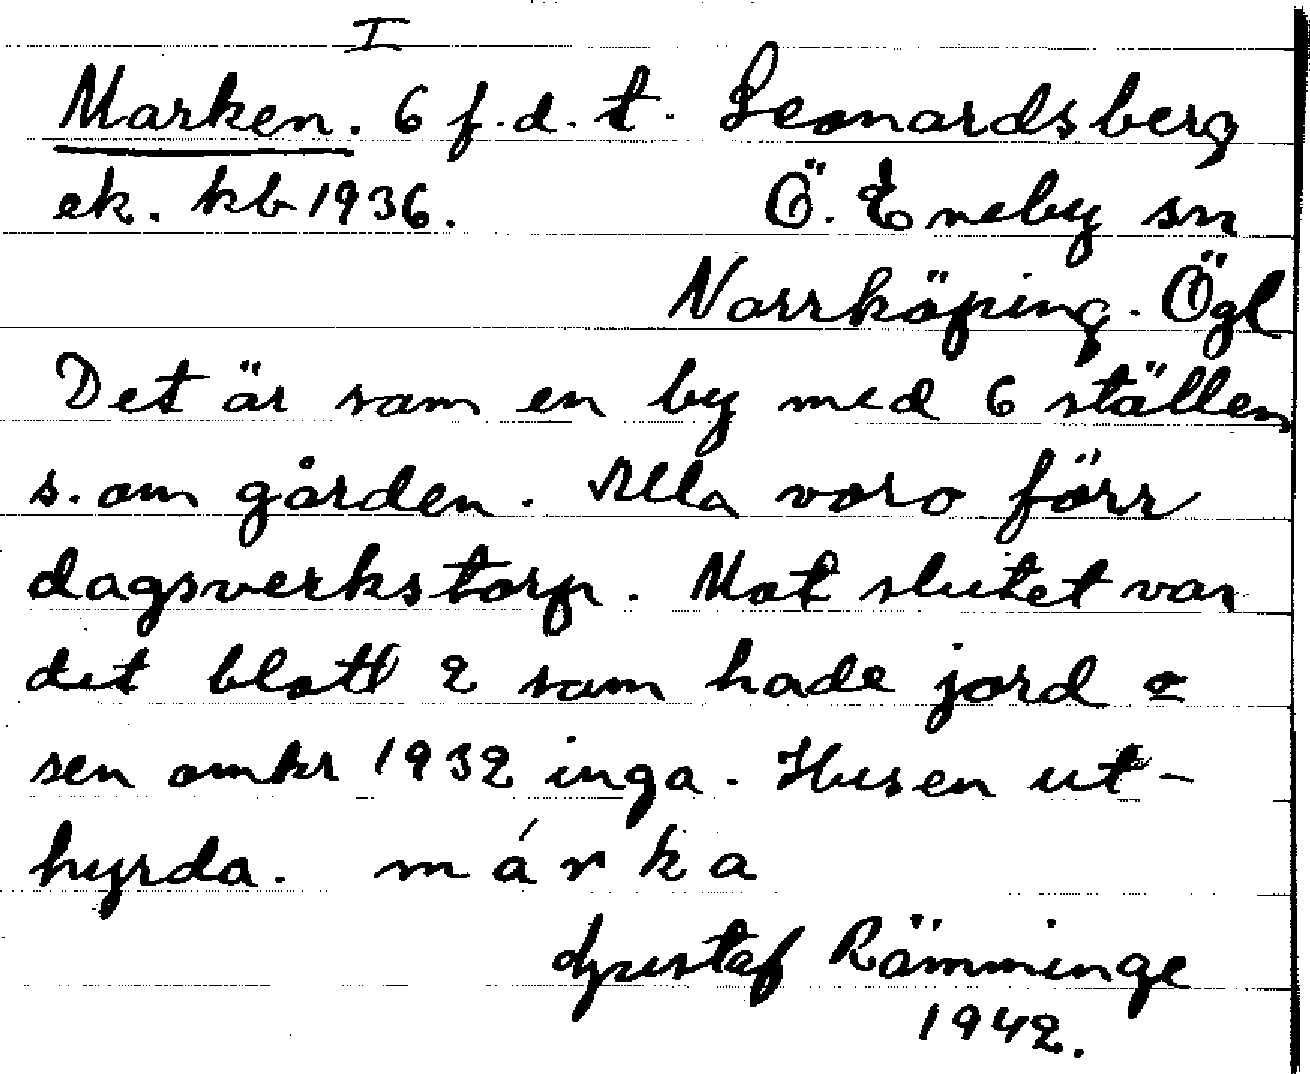 I
Marken. 6 f.d.t. Leonardsberg
ek. kb 1936. Ö. Eneby sn
Norrköping. Ögl
Det är som en by med 6 ställen
s. om gården. Alla voro förr
dagsverkstorp. Mot slutet var
det blott 2 som hade jord o
sen omkr 1932 inga. Husen ut-
hyrda. márka
Gustaf Rämminge
1942.